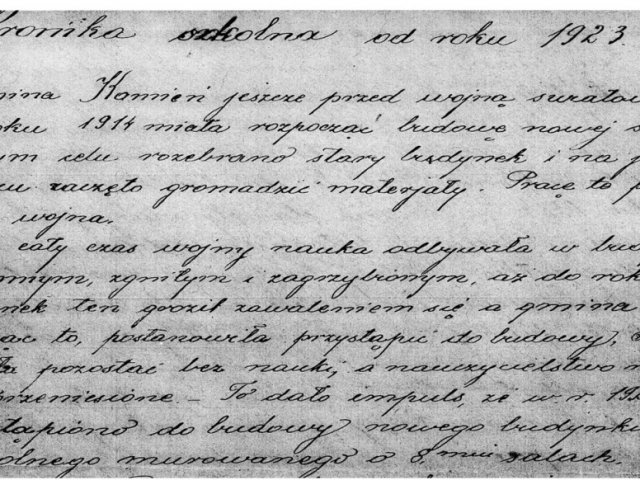 ronika szkolna od roku 1923.
mina Kamień jeszcze przed wojną światow
oku 1914 miała rozpocząć budowę nowej s
ym celu rozebrano stary budynek i na p
cu zaczęto gromadzić materjały. Pracę tę p
wojna.
cały czas wojny nauka odbywała w bud
nnym, zgniłym i zagrzybionym, aż do rok
nek ten groził zawaleniem się a gmina
ąc to, postanowiła przystąpić do budowy,
pozostać bez nauki, a nauczycielstwo
przeniesione – To dało impuls, że w r. 192
tąpiono do budowy nowego budynku
olnego murowanego o 8 miu salach.